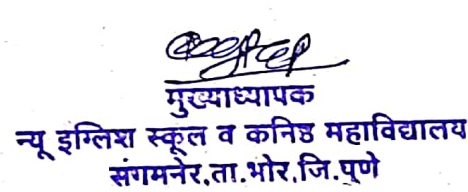 मुख्याध्यापक
न्यू इग्लिश स्कूल व कनिष्ठ महाविद्यालय
संगमनेर,ता.भोर,जि.पुणे